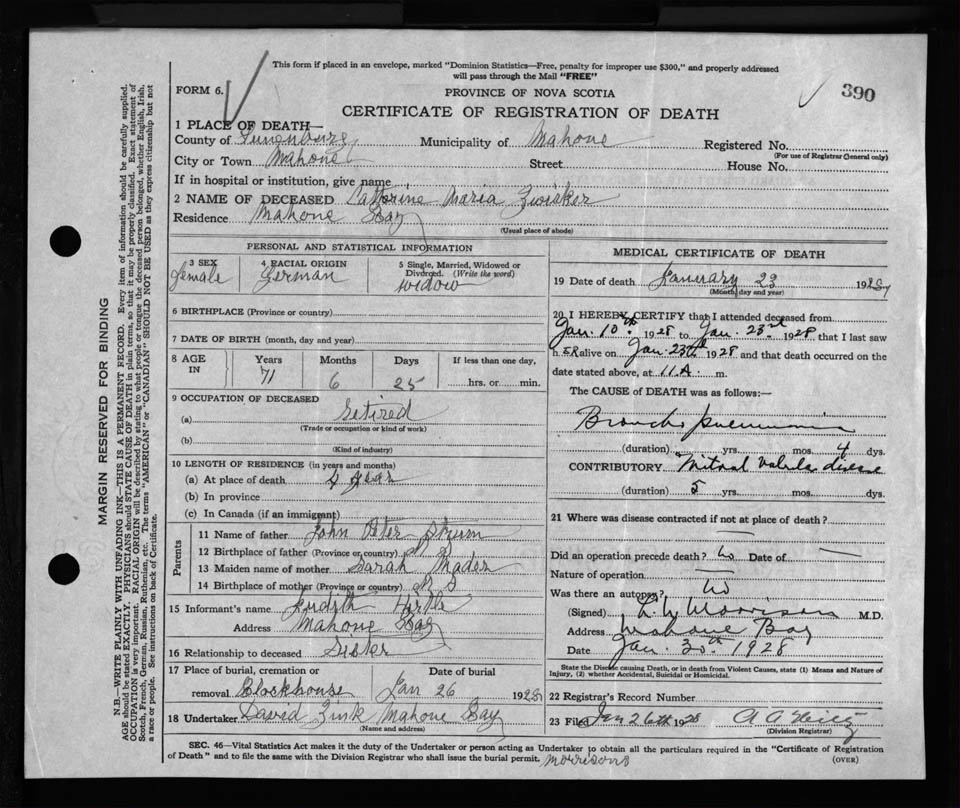 This form if placed in an envelope, marked "Dominion Statistics—Free, penalty for improper use $300," and properly addressed
will pass through the Mail "FREE"
FORM 6.
PROVINCE OF NOVA SCOTIA
390
CERTIFICATE OF REGISTRATION OF DEATH
1 PLACE OF DEATH—
County of Lunenburg Municipality of Mahone Registered No.
(For use of Registrar General only)
City or Town Mahone Street House No.
If in hospital or institution, give name
2 NAME OF DECEASED Catherine Maria Zwicker
Residence Mahone Bay
(Usual place of abode)
PERSONAL AND STATISTICAL INFORMATION
3 SEX
Female
4 RACIAL ORIGIN
German
5 Single, Married, Widowed or
Divorced. (Write the word)
widow
6 BIRTHPLACE (Province or country)
7 DATE OF BIRTH (month, day and year)
8 AGE IN
Years Months Days If less than one day,
71 6 25 hrs. or min.
9 OCCUPATION OF DECEASED
(a) retired
(Trade or occupation or kind of work)
(b)
(Kind of industry)
10 LENGTH OF RESIDENCE (in years and months)
(a) At place of death year
(b) In province
(c) In Canada (if an immigrant)
Parents
11 Name of father John Peter
12 Birthplace of father (Province or country) N S
13 Maiden name of mother Sarah Mader
14 Birthplace of mother (Province or country) N S
15 Informant's name Judith Hirtle
Address Mahone Bay
16 Relationship to deceased Sister
17 Place of burial, cremation or Date of burial
removal Blockhouse Jan 26 1928
18 Undertaker David Zink Mahone Bay
(Name and address)
MEDICAL CERTIFICATE OF DEATH
19 Date of death January 23 1928
(Month, day and year)
20 I HEREBY CERTIFY that I attended deceased from
Jan. 10th 1928 to Jan. 23rd 1928 that I last saw
h er alive on Jan 23rd 1928 and that death occurred on
date stated above, at 11 A. m.
The CAUSE OF DEATH was as follows:—
Broncho pneumonia
(duration) yrs. mos. 4 dys.
CONTRIBUTORY Mitral valvular disease
(duration) 5 yrs. mos. dys.
21 Where was disease contracted if not at place of death?
Did an operation precede death? No Date of —
Nature of operation —
Was there an autopsy? No
(Signed) Morrison M.D.
Address Mahone Bay
Date Jan. 30th 1928
State the Disease causing Death, or in death from Violent Causes, state (1) Means and Nature of
Injury, (2) whether Accidental, Suicidal or Homicidal.
22 Registrar's Record Number
23 Filed Jan 26th 1928
(Division Registrar)
SEC. 46—Vital Statistics Act makes it the duty of the Undertaker or person acting as Undertaker to obtain all the particulars required in the "Certificate of Registration
of Death" and to file the same with the Division Registrar who shall issue the burial permit.
morrisons
(OVER)
MARGIN RESERVED FOR BINDING
N.B.—WRITE PLAINLY WITH UNFADING INK—THIS IS A PERMANENT RECORD. Every item of information should be carefully supplied.
AGE should be stated EXACTLY. PHYSICIANS should STATE CAUSE OF DEATH in plain terms, so that it may be properly classified. Exact statement of
OCCUPATION is very important. RACIAL ORIGIN will be described by stating to what people or tongue the deceased person belonged, whether English, Irish,
Scotch, French, German, Russian, Ruthenian, etc. The terms "AMERICAN" or "CANADIAN" SHOULD NOT BE USED as they express citizenship but not
a race or people. See instructions on back of Certificate.